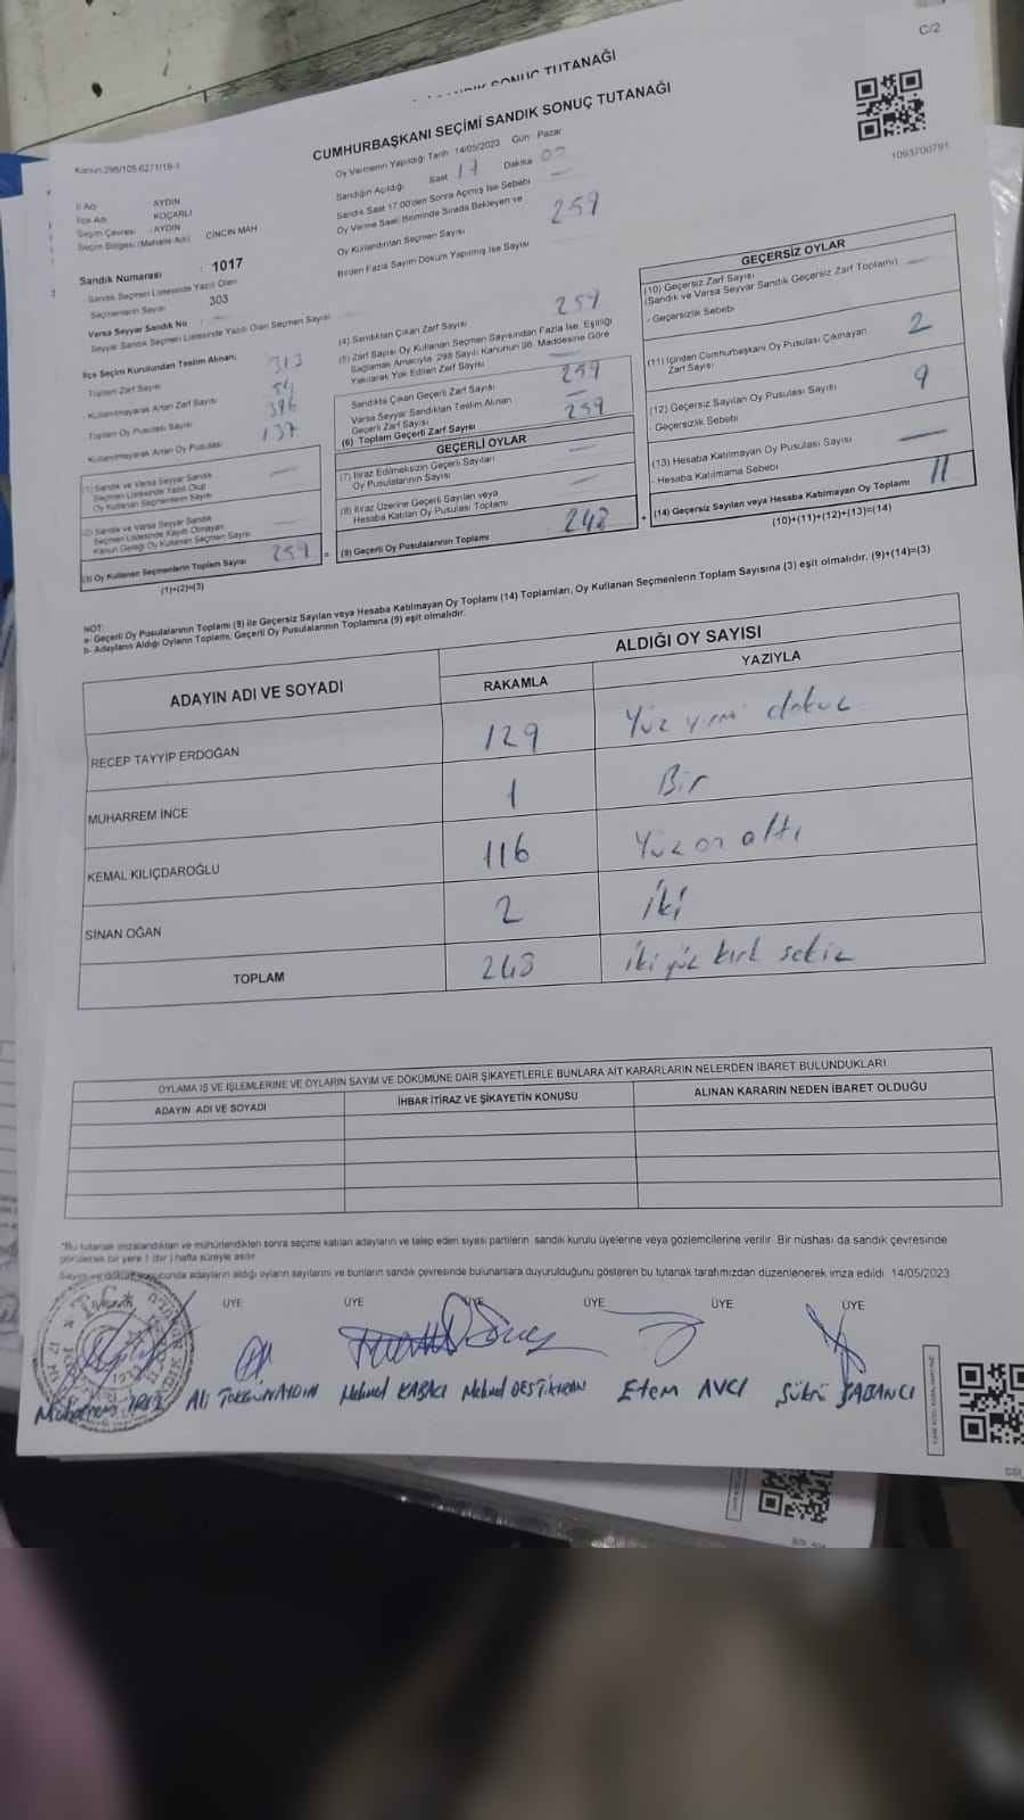 C/2
SONUÇ TUTANAĞI
CUMHURBAŞKANI SEÇİMİ SANDIK SONUÇ TUTANAĞI
1093700791
Oy Vermenin Yapıldığı Tarih 14/05/2023 Gün Pazar
Sandığın Açıldığı Saat 17 Dakika
Sandık Saat 17.00'den Sonra Açılmış İse Sebebi
Oy Verme Saati Bitiminde Sırada Bekleyen ve
Oy Kullandırılan Seçmen Sayısı 259
Birden Fazla Sayım Döküm Yapılmış İse Sayısı
İl Adı AYDIN
İlçe Adı KOÇARLI
Seçim Çevresi : AYDIN
Seçim Bölgesi (Muhtarlık Adı) CİNCİN MAH
Sandık Numarası : 1017
Sandık Seçmen Listesinde Yazılı Olan
Seçmenlerin Sayısı 303
Varsa Seyyar Sandık No
Seyyar Sandık Seçmen Listesinde Yazılı Olan Seçmen Sayısı
İlçe Seçim Kurulundan Teslim Alınan;
Toplam Zarf Sayısı 313
Kullanılmayarak Artan Zarf Sayısı 54
Toplam Oy Pusulası Sayısı 396
Kullanılmayarak Artan Oy Pusulası 137
(1) Sandık ve Varsa Seyyar Sandık
Seçmen Listesinde Yazılı Olup
Oy Kullanan Seçmenlerin Sayısı
(2) Sandık ve Varsa Seyyar Sandık
Seçmen Listesinde Kayıtlı Olmayan
Kanun Gereği Oy Kullanan Seçmen Sayısı
(3) Oy Kullanan Seçmenlerin Toplam Sayısı 259
(1)+(2)=(3)
(4) Sandıktan Çıkan Zarf Sayısı 259
(5) Zarf Sayısı Oy Kullanan Seçmen Sayısından Fazla İse, Eşitliği
Sağlamak Amacıyla 298 Sayılı Kanunun 98. Maddesine Göre
Yakılarak Yok Edilen Zarf Sayısı
Sandıkta Çıkan Geçerli Zarf Sayısı 259
Varsa Seyyar Sandıktan Teslim Alınan
Geçerli Zarf Sayısı
(6) Toplam Geçerli Zarf Sayısı 259
GEÇERLİ OYLAR
(7) İtiraz Edilmeksizin Geçerli Sayılan
Oy Pusulalarının Sayısı
(8) İtiraz Üzerine Geçerli Sayılan veya
Hesaba Katılan Oy Pusulası Toplamı
(9) Geçerli Oy Pusulalarının Toplamı 248
GEÇERSİZ OYLAR
(10) Geçersiz Zarf Sayısı
(Sandık ve Varsa Seyyar Sandık Geçersiz Zarf Toplamı)
- Geçersizlik Sebebi
(11) İçinden Cumhurbaşkanı Oy Pusulası Çıkmayan
Zarf Sayısı 2
(12) Geçersiz Sayılan Oy Pusulası Sayısı 9
Geçersizlik Sebebi
(13) Hesaba Katılmayan Oy Pusulası Sayısı
Hesaba Katılmama Sebebi
(14) Geçersiz Sayılan veya Hesaba Katılmayan Oy Toplamı 11
(10)+(11)+(12)+(13)=(14)
NOT:
a- Geçerli Oy Pusulalarının Toplamı (9) ile Geçersiz Sayılan veya Hesaba Katılmayan Oy Toplamı (14) Toplamları, Oy Kullanan Seçmenlerin Toplam Sayısına (3) eşit olmalıdır. (9)+(14)=(3)
b- Adayların Aldığı Oyların Toplamı, Geçerli Oy Pusulalarının Toplamına (9) eşit olmalıdır.
ADAYIN ADI VE SOYADI
ALDIĞI OY SAYISI
RAKAMLA YAZIYLA
RECEP TAYYİP ERDOĞAN 129 Yüz yirmi dokuz
MUHARREM İNCE 1 Bir
KEMAL KILIÇDAROĞLU 116 Yüz on altı
SİNAN OĞAN 2 iki
TOPLAM 248 iki yüz kırk sekiz
OYLAMA İŞ VE İŞLEMLERİNE VE OYLARIN SAYIM VE DÖKÜMÜNE DAİR ŞİKAYETLERLE BUNLARA AİT KARARLARIN NELERDEN İBARET BULUNDUKLARI
ADAYIN ADI VE SOYADI İHBAR İTİRAZ VE ŞİKAYETİN KONUSU ALINAN KARARIN NEDEN İBARET OLDUĞU
*Bu tutanak imzalandıktan ve mühürlendikten sonra seçime katılan adayların ve talep eden siyasi partilerin sandık kurulu üyelerine veya gözlemcilerine verilir. Bir nüshası da sandık çevresinde
görülecek bir yere 1 (bir) hafta süreyle asılır
Sayım ve döküm sonunda adayların aldığı oyların sayılarını ve bunların sandık çevresinde bulunanlara duyurulduğunu gösteren bu tutanak tarafımızdan düzenlenerek imza edildi. 14/05/2023
ÜYE ÜYE ÜYE ÜYE ÜYE ÜYE
Mehmet KABACI Etem AVCI Şükrü SABANCI